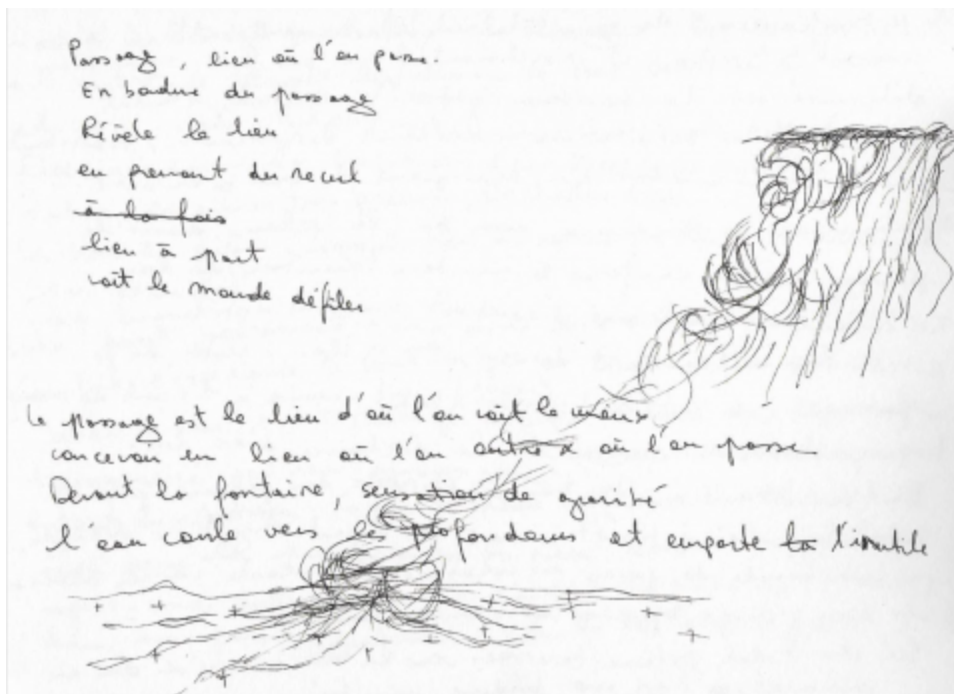 Passage, lieu où l'on passe.
En bordure du passage
Révèle le lieu
en prenant du recul
à la fois
lieu à part
voit le monde défiler
Le passage est le lieu d'où l'on voit le mieux
concevoir un lieu où l'on entre où l'on passe
Devant la fontaine, sensation de gravité
l'eau coule vers les profondeurs et emporte l'inutile